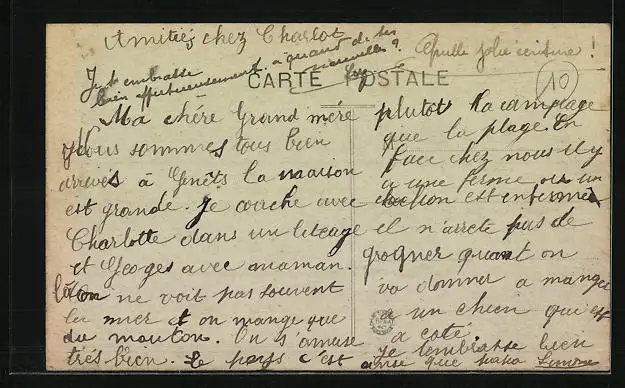 Amitiés chez Charlot
Quelle jolie écriture !
Je t embrasse
bien affectueusement, à quand de tes
nouvelles ?
CARTE POSTALE
10
Ma chére Grand mére
Nous sommes tous bien
arrivés à Genêts la maison
est grande. Je couche avec
Charlotte dans un lit cage
et Geoges avec maman.
Là on ne voit pas souvent
la mer et on mange que
du mouton. On s'amuse
très bien. Le pays c'est
plutot la campagne
que la plage. En
face chez nous il y
a une ferme ou un
cochon est enfermé
il n'arrete pas de
grogner quant on
va donner a manger
a un chien qui est
a coté.
Je tembrasse bien
ainsi que papa Simone